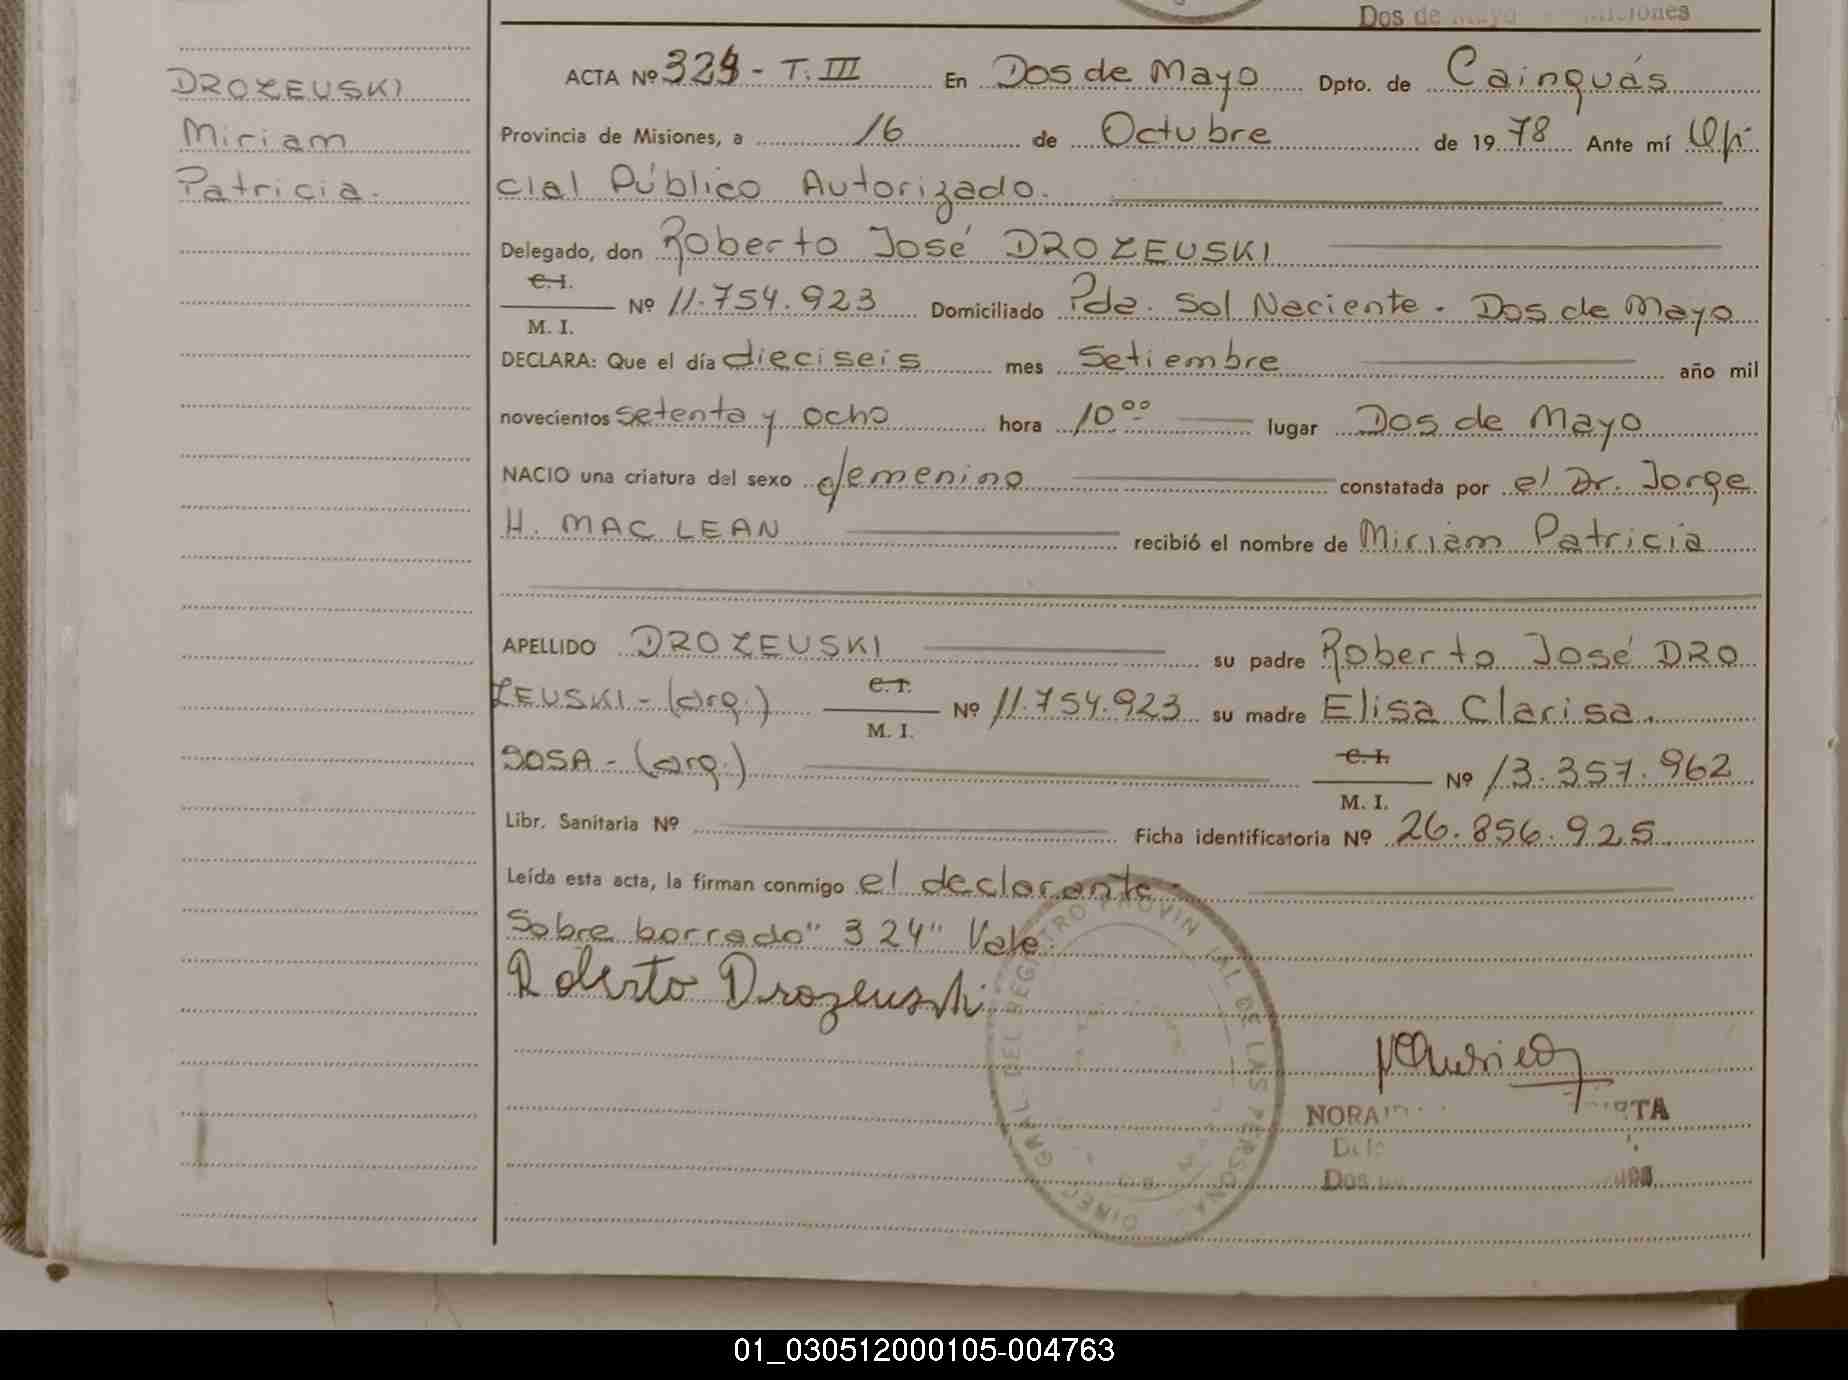 Dos de Mayo Misiones
DROZEUSKI
Miriam
Patricia.
ACTA Nº 324 - T. III En Dos de Mayo Dpto. de Cainguás
Provincia de Misiones, a 16 de Octubre de 1978 Ante mí Ofi
cial Público Autorizado.
Delegado, don Roberto José DROZEUSKI
C.I.
M. I. Nº 11.754.923 Domiciliado Pda. Sol Naciente - Dos de Mayo
DECLARA: Que el día dieciseis mes Setiembre año mil
novecientos setenta y ocho hora 10⁰⁰ lugar Dos de Mayo
NACIO una criatura del sexo femenino constatada por el Dr. Jorge
H. MAC LEAN recibió el nombre de Miriam Patricia
APELLIDO DROZEUSKI su padre Roberto José DRO
ZEUSKI - (arg.) C.I. M. I. Nº 11.754.923 su madre Elisa Clarisa
SOSA - (arg.) C.I. M. I. Nº 13.357.962
Libr. Sanitaria Nº Ficha identificatoria Nº 26.856.925
Leída esta acta, la firman conmigo el declarante -
Sobre borrado "324" Vale.
Roberto Drozeuski
DIREC GRAL DEL REGISTRO PROVINCIAL DE LAS PERSONAS
NORA
Dos
01_030512000105-004763